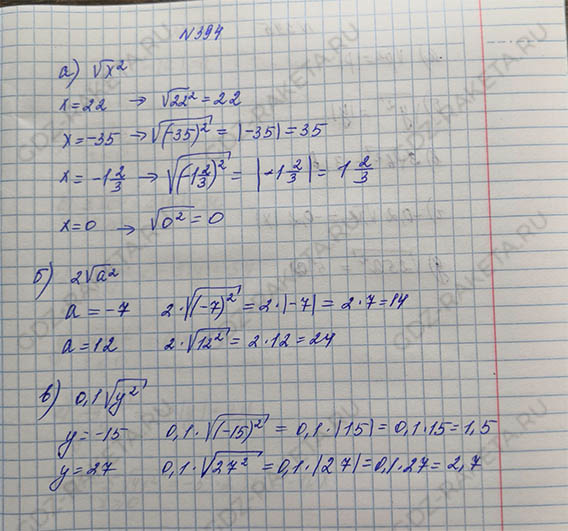 N394
а) √x²
x=22 → √22² = 22
x=-35 → √(-35)² = |-35| = 35
x = -1 2/3 → √(-1 2/3)² = |-1 2/3| = 1 2/3
x=0 → √0² = 0
б) 2√a²
a = -7 2·√(-7)² = 2·|-7| = 2·7=14
a=12 2·√12² = 2·12=24
в) 0,1√y²
y=-15 0,1·√(-15)² = 0,1·|15| = 0,1·15=1,5
y=27 0,1·√27² = 0,1·|27|=0,1·27= 2,7
GDZ-RAKETA.RU